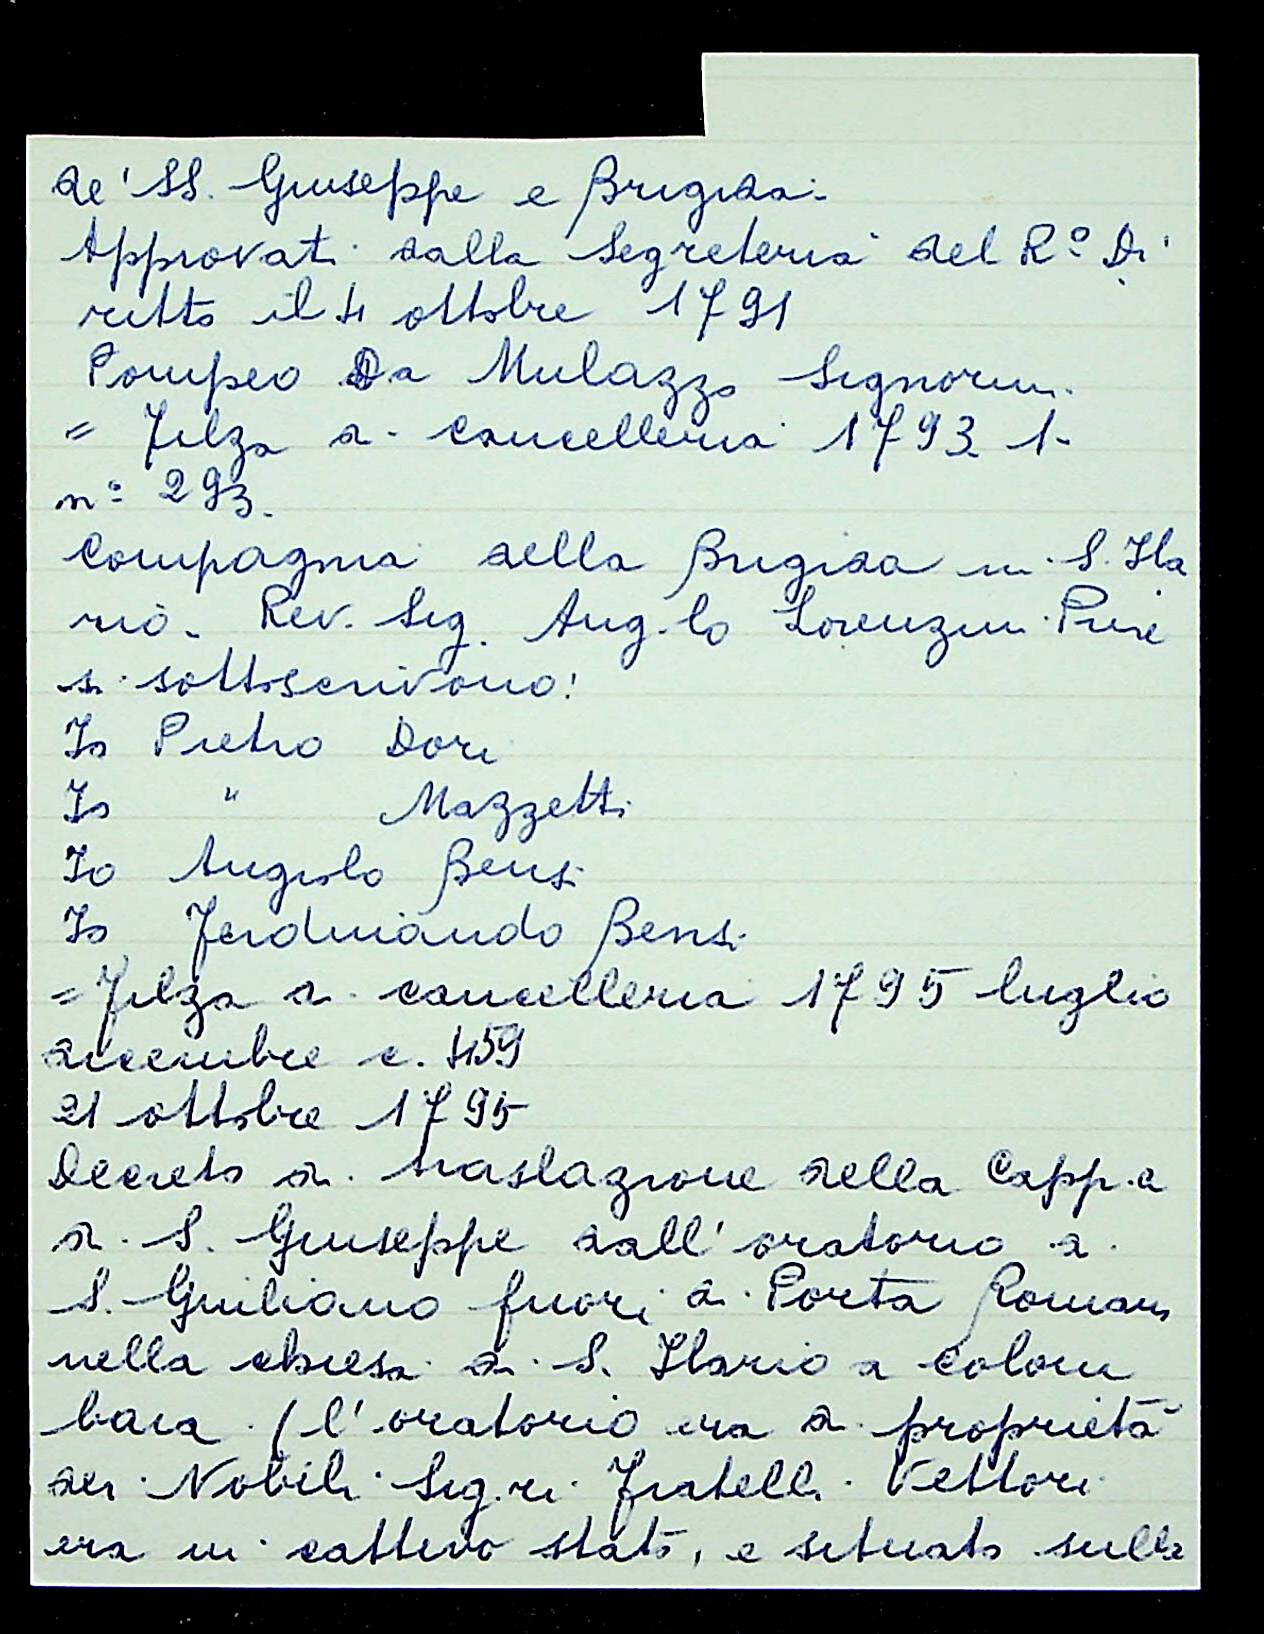 de' SS. Giuseppe e Brigida.
Approvati dalla Segreteria del R.º Di
ritto il 4 ottobre 1791
Pompeo Da Mulazzo Signorini.
= Filza di cancelleria 1793 1-
nº 293.
Compagnia della Brigida in S. Ila
rio. Rev. Sig. Ang.lo Lorenzini Priore
si sottoscrivono:
Io Pietro Dori
Io " Mazzetti
Io Angiolo Bensi
Io Ferdinando Bensi
= Filza di cancelleria 1795 luglio
dicembre c. 459
21 ottobre 1795
Decreto di traslazione della Capp.a
di S. Giuseppe dall' oratorio di
S. Giuliano fuori di Porta Romana
nella chiesa di S. Ilario a Colom
baia (l' oratorio era di proprietà
dei Nobili Sig.ri Fratelli Vettori
era in cattivo stato, e situato sulla